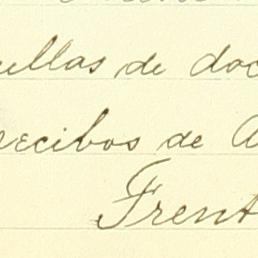 uellas de doc
recibos de a
Frent